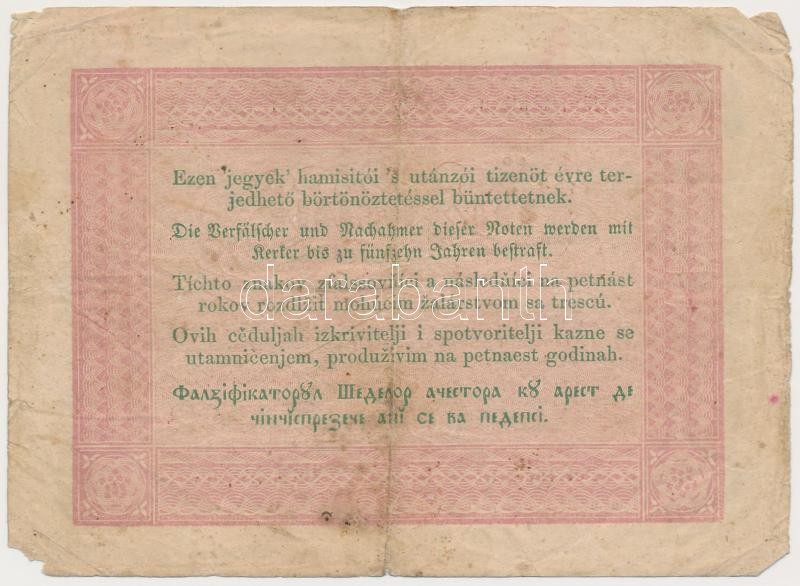 Ezen 'jegyek' hamisitói 's utánzói tizenöt évre ter-
jedhető börtönöztetéssel büntettetnek.
Die Verfälscher und Nachahmer dieser Noten werden mit
Kerker bis zu fünfzehn Jahren bestraft.
Tíchto znakov zfalšovníci a následníci na petnást
rokov rozdlžit mohúcím žalárstvom sa trescú.
Ovih cĕduljah izkrivitelji i spotvoritelji kazne se
utamničenjem, produživim na petnaest godinah.
Фалꙁіфікаторꙋл Шеделор ачестора кꙋ арест де
чінчіспрезече ані се ва педепсі.
darabanth